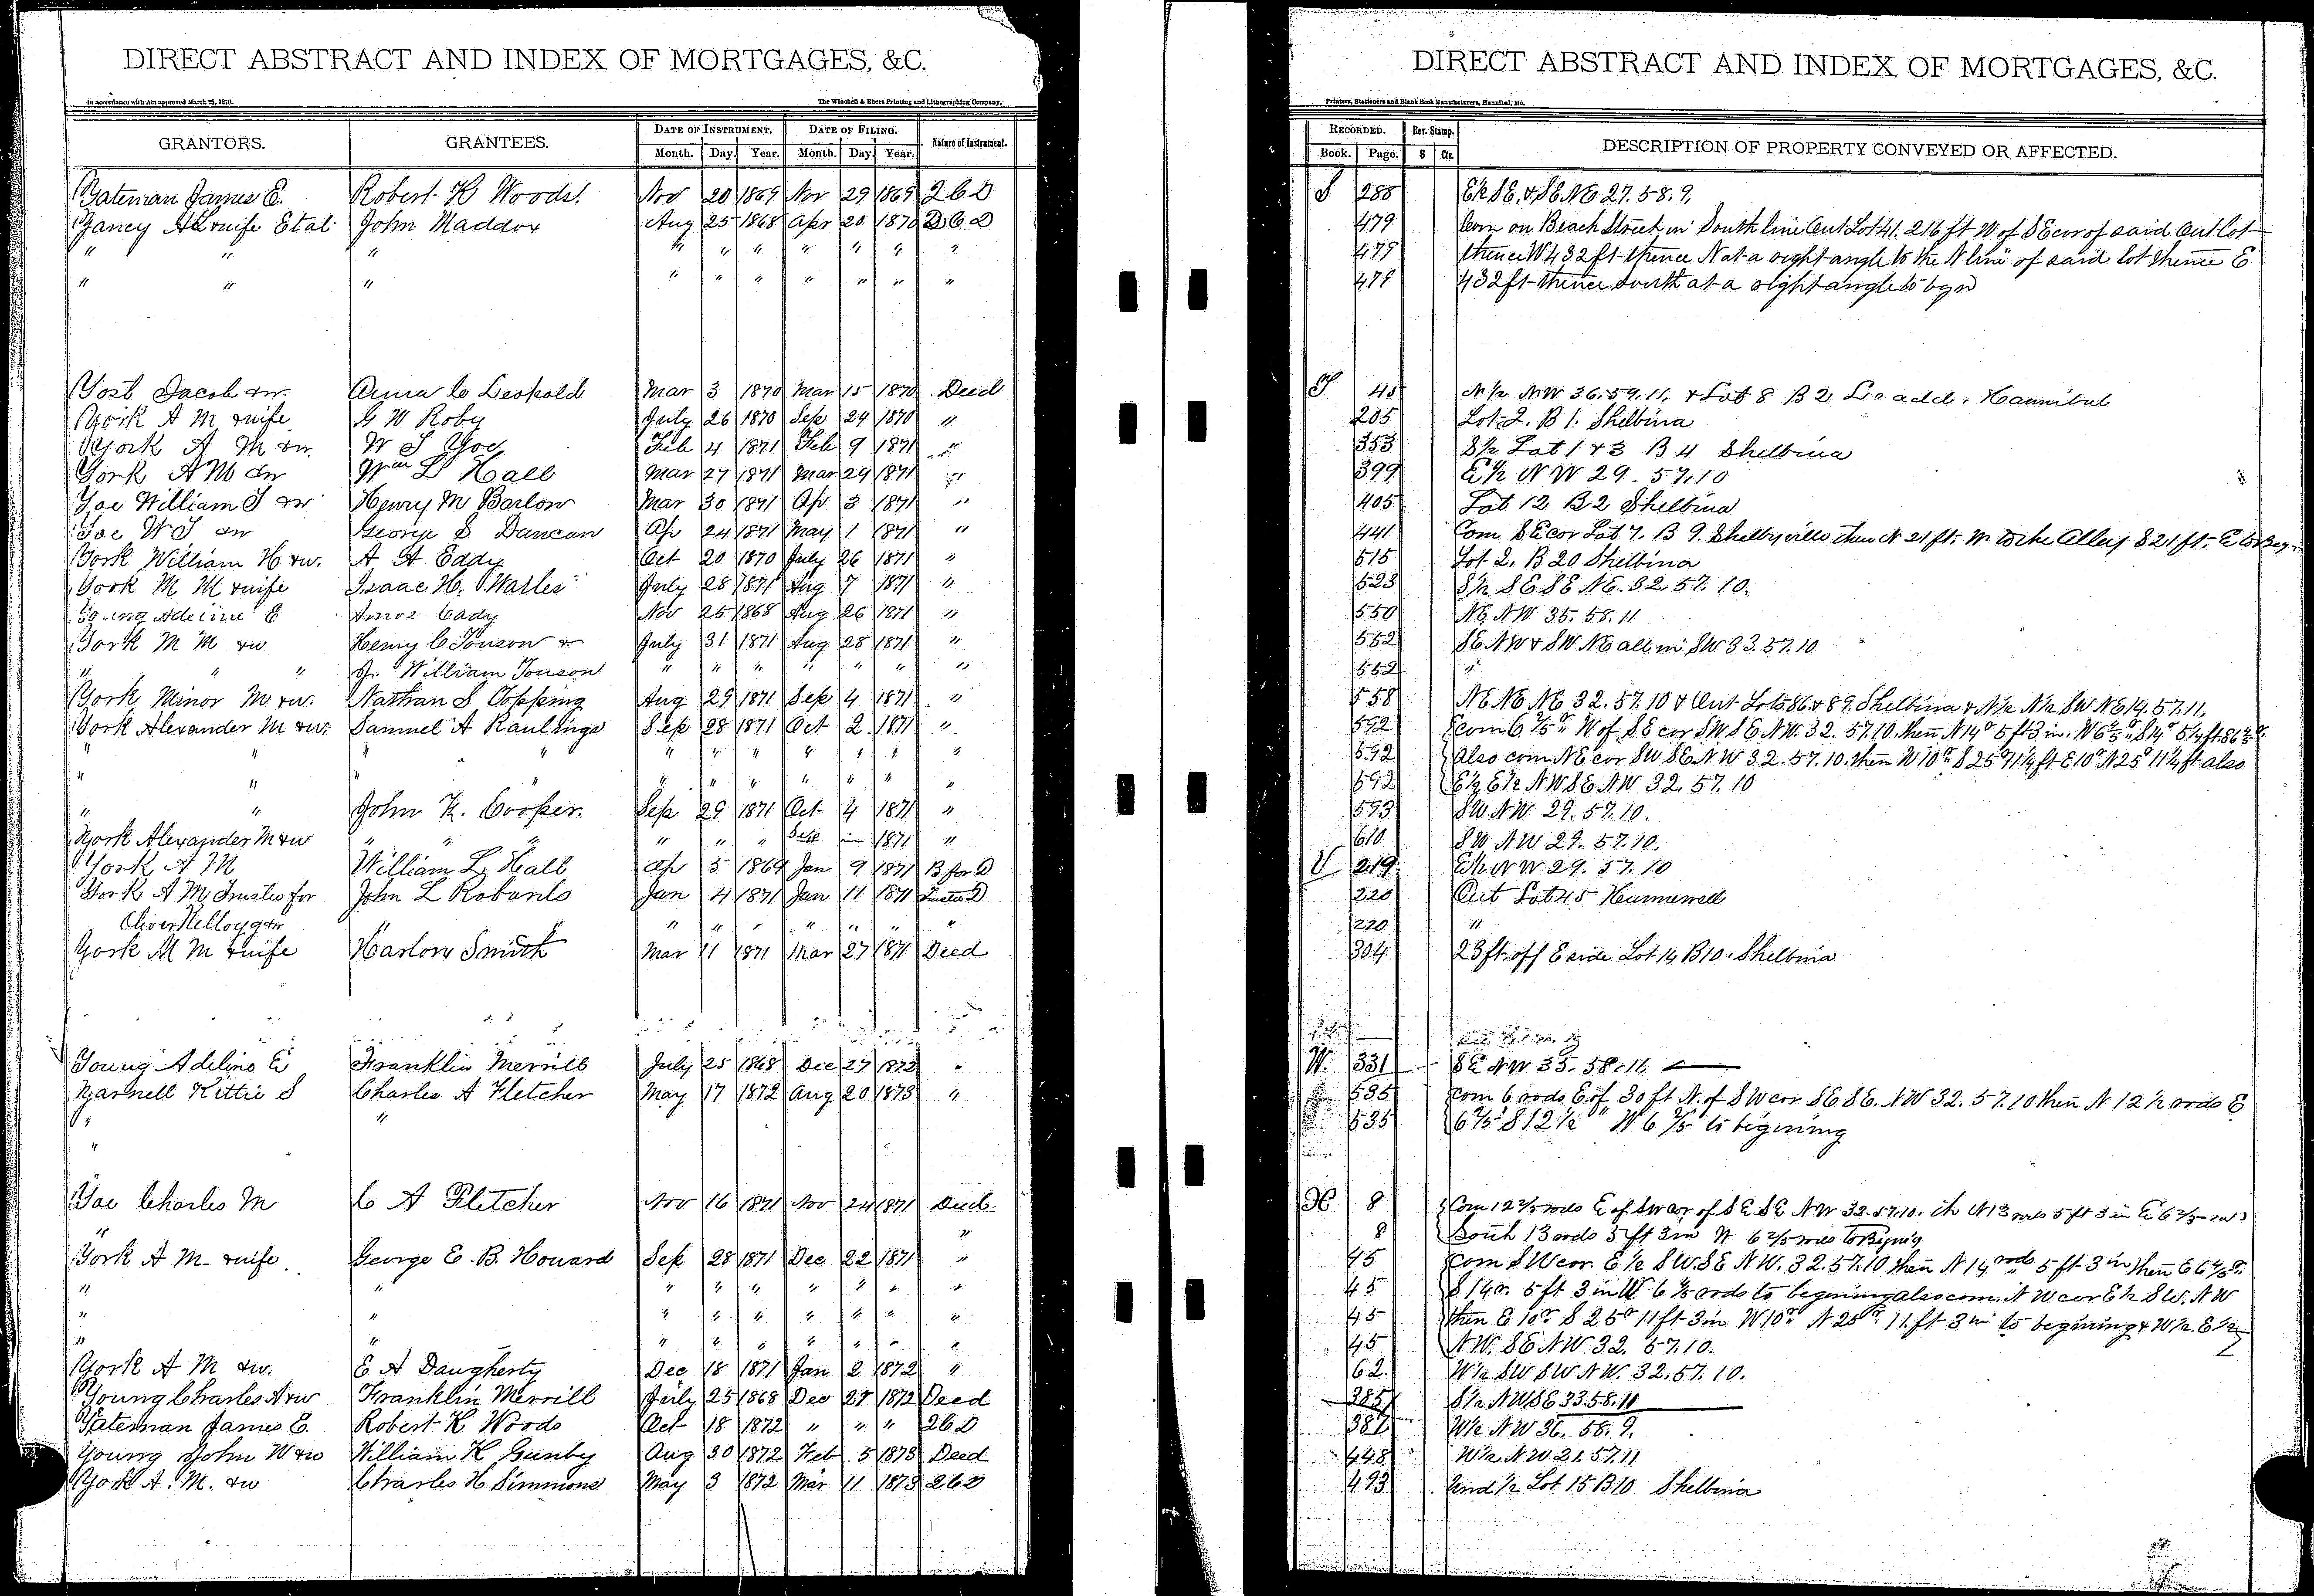 DIRECT ABSTRACT AND INDEX OF MORTGAGES, &C.
In accordance with Act approved March 25, 1870.
The Winchell & Ebert Printing and Lithographing Company,
GRANTORS. GRANTEES. DATE OF INSTRUMENT. DATE OF FILING. Nature of Instrument.
Month. Day. Year. Month. Day. Year.
Yateman James E. Robert K Woods. Nov 20 1869 Nov 29 1869 2 6 D
Yancy & wife Et al. John Maddox Aug 25 1868 Apr 20 1870 2 6 D
" " " " " " " " " "
" " " " " " " " " "
Yost Jacob & w. Anna C Leopold Mar 3 1870 Mar 15 1870 Deed
York A M & wife G W Roby July 26 1870 Sep 24 1870 "
York A M & w. W J Yoe Feb 4 1871 Feb 9 1871 "
York A M & w Wm L Hall Mar 27 1871 Mar 29 1871 "
Yoe William J & w Henry M Barlow Mar 30 1871 Ap 3 1871 "
Yoe W J & w George S Duncan Ap 24 1871 May 1 1871 "
York William H & w. A A Eddy Oct 20 1870 July 26 1871 "
York M M & wife Isaac H. Warles July 28 1871 Aug 7 1871 "
Young Adeline E Amos Cady Nov 25 1868 Aug 26 1871 "
York M M & w Henry C Tonson & July 31 1871 Aug 28 1871 "
" " " William Tonson " " " " " " "
York Minor M & w. Nathan S Topping Aug 29 1871 Sep 4 1871 "
York Alexander M & w. Samuel A Raulings Sep 28 1871 Oct 2 1871 "
" " " " " " " " " " "
" " " " " " " " " " "
" " John K. Cooper. Sep 29 1871 Oct 4 1871 "
York Alexander M & w " " " " " " Sep 1871 "
York A M William L. Hall Ap 5 1869 Jan 9 1871 B for D
York A M Trustee for John L Robards Jan 4 1871 Jan 11 1871 Trustee D
Oliver Kellogg & w " " " " " " " "
York M M & wife Harlow Smith Mar 11 1871 Mar 27 1871 Deed
Young Adeline E Franklin Merrill July 25 1868 Dec 27 1872 "
Yarnell Kittie S Charles A Fletcher May 17 1872 Aug 20 1873 "
" "
"
Yoe Charles M C A Fletcher Nov 16 1871 Nov 24 1871 Deed.
" "
York A M & wife George E. B. Howard Sep 28 1871 Dec 22 1871 "
" " " " " " " " "
" " " " " " " " "
" " " " " " " " "
York A M & w. E A Daugherty Dec 18 1871 Jan 2 1872 "
Young Charles A & w Franklin Merrill July 25 1868 Dec 27 1872 Deed
Yateman James E. Robert K Woods Oct 18 1872 " " " 2 6 D
Young John W & w William K Gunby Aug 30 1872 Feb. 5 1873 Deed
York A. M. & w Charles H Simmons May 3 1872 Mar 11 1873 2 6 D
DIRECT ABSTRACT AND INDEX OF MORTGAGES, &C.
Printers, Stationers and Blank Book Manufacturers, Hannibal, Mo.
RECORDED. Rev. Stamp. DESCRIPTION OF PROPERTY CONVEYED OR AFFECTED.
Book. Page. $ Cts.
S 288 E½ SE. & SE NE 27. 58. 9,
479 Com on Beach Street in South line Out Lot 41. 216 ft W of S E cor of said Out lot
479 thence W 432 ft thence N at a right angle to the N line of said lot thence E
479 432 ft thence south at a right angle to bgn
T 45 N ½ NW 36. 59. 11, & Lot 8 B 2 add. Hannibal
205 Lot 2. B 1. Shelbina
353 S½ Lot 1 & 3 B 4 Shelbina
399 E½ N W 29. 57. 10
405 Lot 12 B 2 Shelbina
441 Com S E cor Lot 7. B 9. Shelbyville then N 21 ft. W to the Alley S 21 ft. E to Beg
515 Lot 2. B 20 Shelbina
523 S½ SE SE NE. 32. 57. 10.
550 NE NW 35. 58. 11
552 SE NW & SW NE all in SW 33. 57. 10
552 "
558 NE NE NE 32. 57. 10 & Out Lots 86. & 89. Shelbina & N½ N½ SW NE 14. 57. 11.
592 com 6 ⅖ r W of S E cor SW SE NW. 32. 57. 10. then N 14 r 5 ft 3 in. W 6
592 Also com N E cor SW SE N W 32. 57. 10. then W 10 r S 25 r 11¼ ft E 10 r N 25 r 11¼ ft also
592 E½ E½ NW SE NW 32. 57. 10
593 SW NW 29. 57. 10.
610 S W NW 29. 57. 10.
V 219 E½ N W 29. 57. 10
220 Out Lot 45 Hunnewell
220 "
304 23 ft. off E side Lot 14 B 10. Shelbina
W. 331 SE NW 35. 58. 11.
535 com 6 rods E of 30 ft N. of S W cor SE SE. NW 32. 57. 10 then N 12 ½ rods E
535 6 ⅖ S 12 ½ " W 6 ⅖ to begining
X 8 Com 12 ⅘ rods E of SW cor of SE SE NW 32. 57. 10. th N 13 rods 5 ft 3 in E 6 ⅖ rods
8 South 13 rods 5 ft 3 in W 6 ⅖ rods to Begining
45 com S W cor. E ½ S W. SE N W. 32. 57. 10 then N 14 rods 5 ft 3 in then E 6 ⅖ r.
45 S 14 r. 5 ft 3 in W. 6 ⅖ rods to begining also com. N W cor E ½ S W. N W
45 then E 10 r S 25 r 11 ft 3 in W 10 r N 25 r. 11. ft 3 in to begining & W ½. E ½
45 N W. SE NW 32. 57. 10.
62 W½ SW SW N W. 32. 57. 10.
385 S½ NW SE 33. 58. 11
387 W½ NW 36. 58. 9.
448 W½ NW 21. 57. 11
493 Und ½ Lot 15 B 10 Shelbina